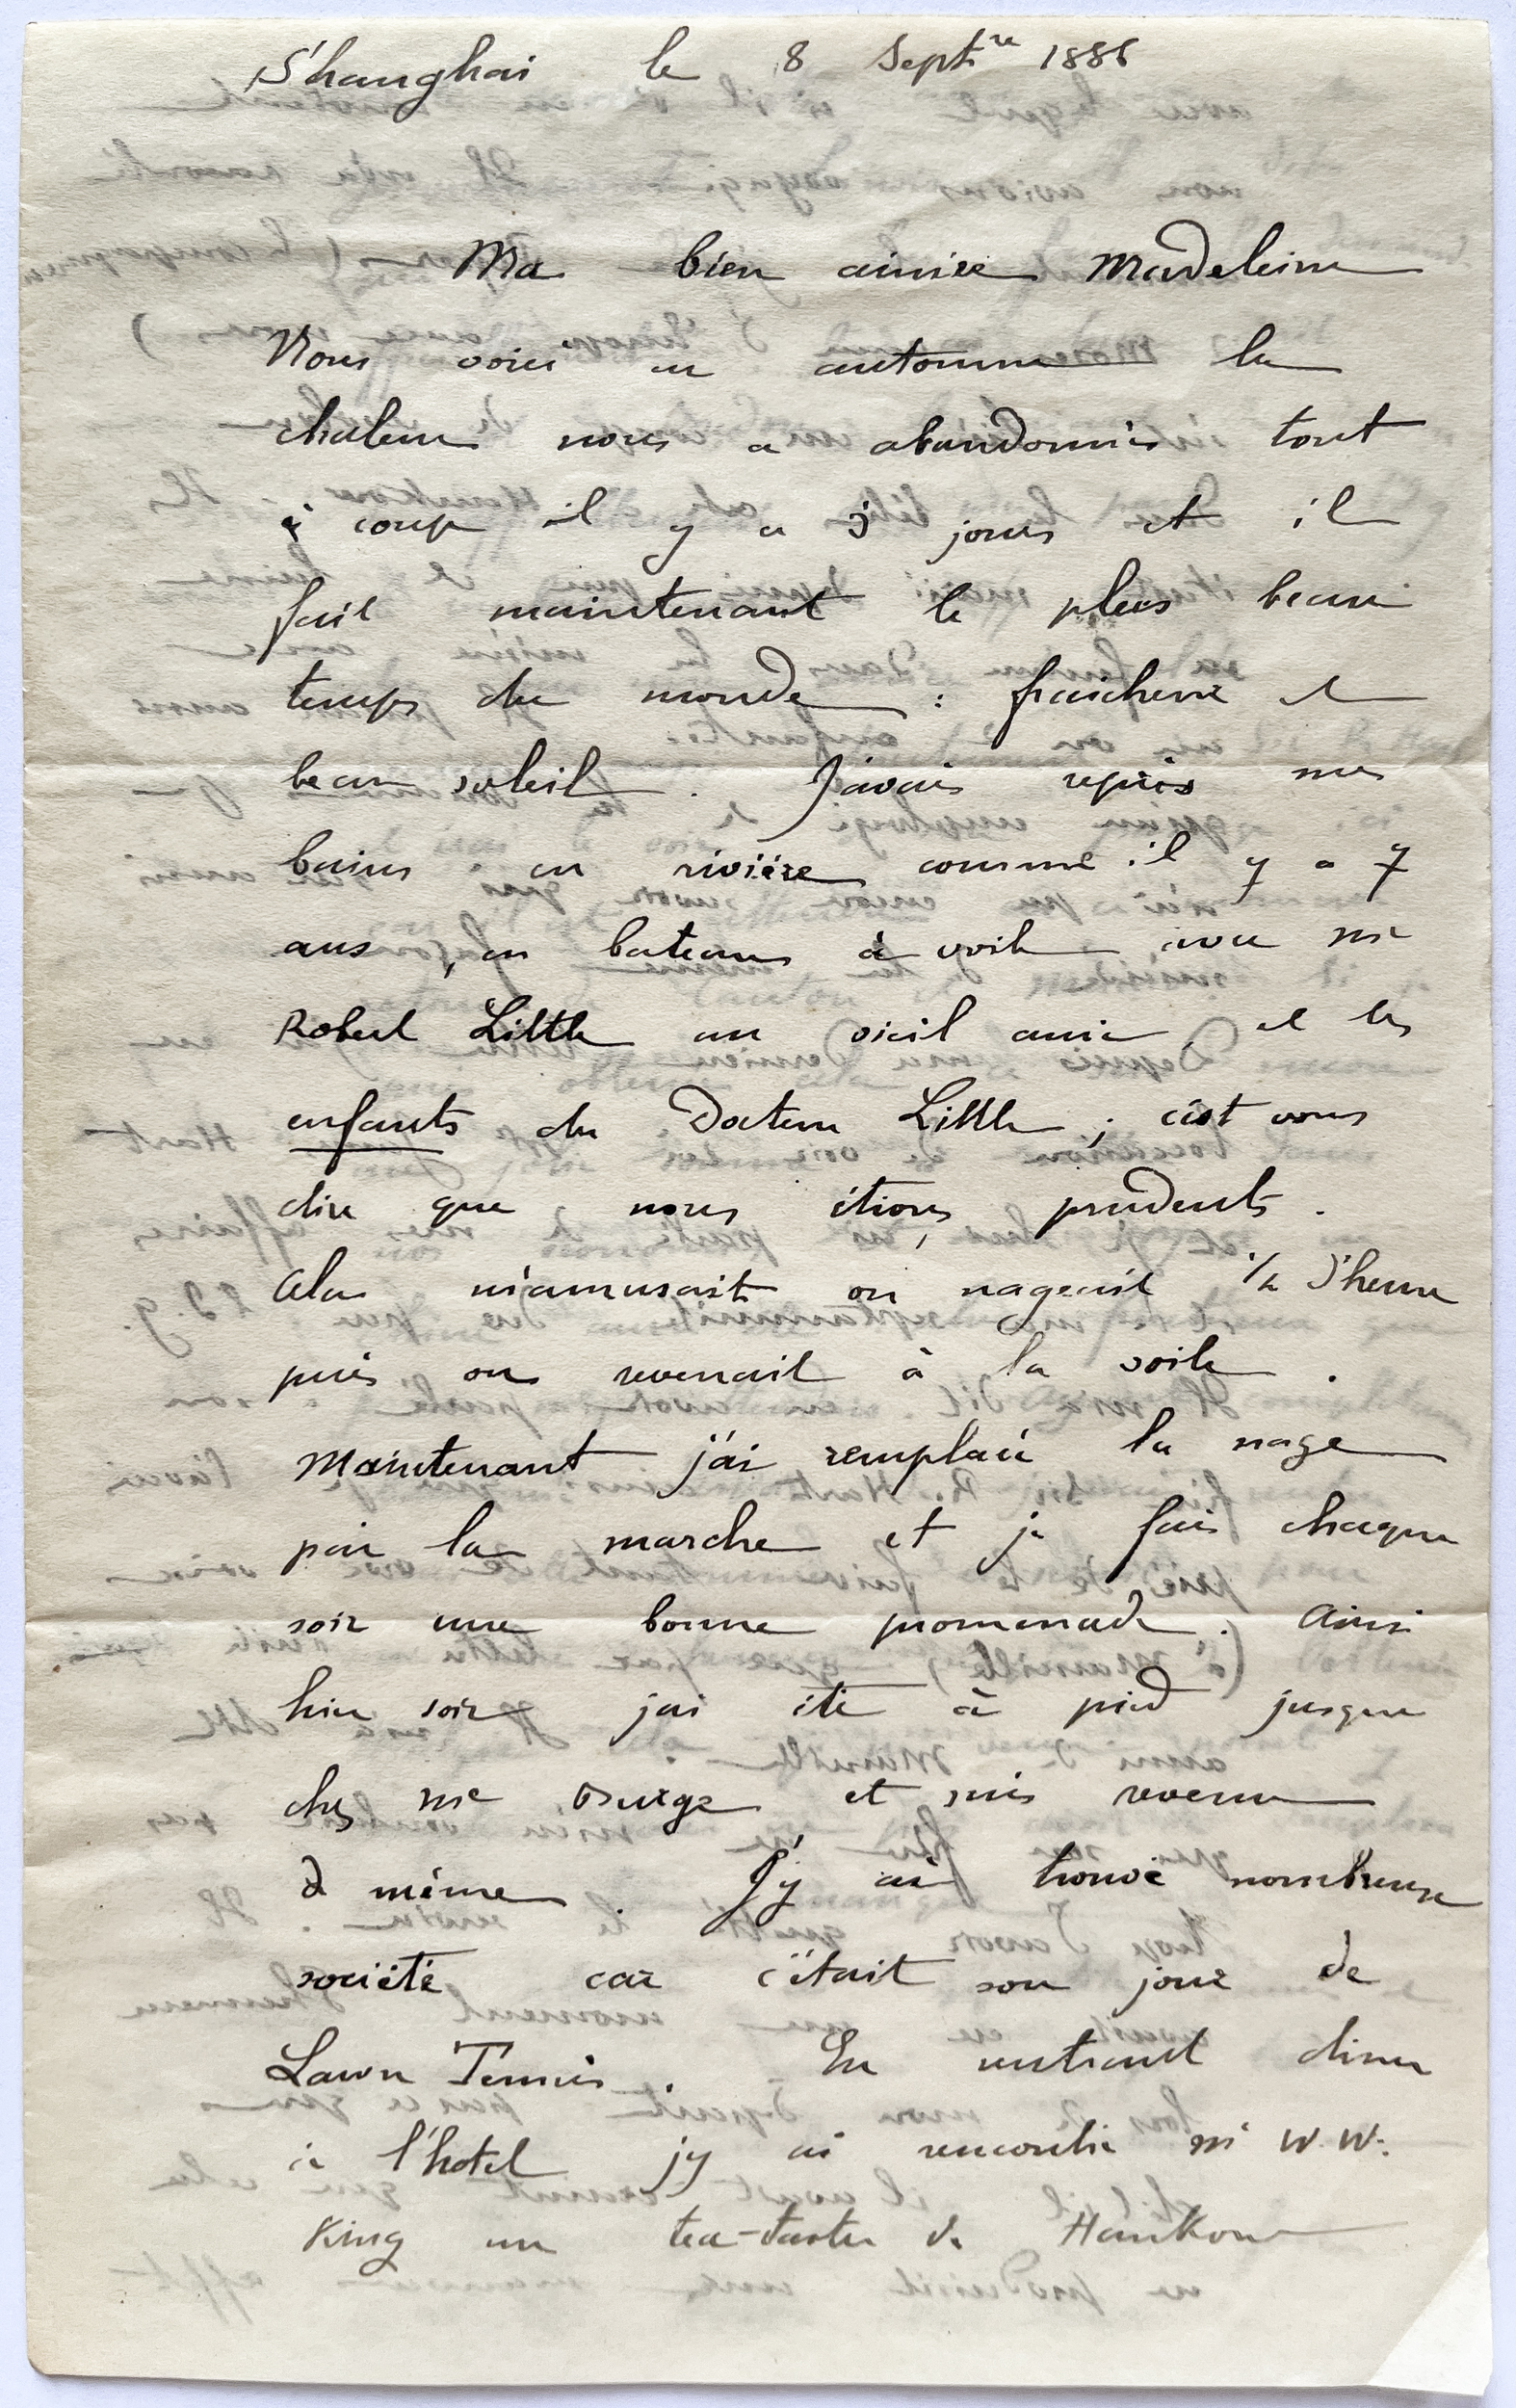 Shanghai le 8 Sept re 1886
Ma bien aimée Madeleine
Nous voici en automne la
chaleur nous a abandonnés tout
à coup il y a 3 jours et il
fait maintenant le plus beau
temps du monde : fraicheur et
beau soleil. J'avais repris mes
bains en rivière comme il y a 7
ans, en bateau à voile avec Mr
Robert Little un vieil ami et les
enfants du Docteur Little ; c'est vous
dire que nous étions prudents.
Cela m'amusait on nageait 1/2 d'heure
puis on revenait à la voile.
Maintenant j'ai remplacé la nage
par la marche et je fais chaque
soir une bonne promenade. Ainsi
hier soir j'ai été à pied jusque
chez Mr et suis revenu
de même. J'y ai trouvé nombreuse
société car c'était son jour de
Lawn Tennis. En rentrant diner
à l'hotel j'y ai rencontré Mr W.W.
King un tea-taster de Hankow